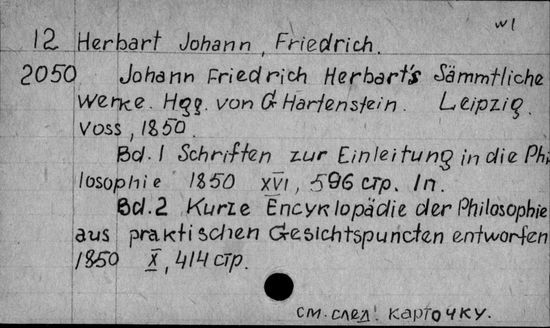 w1
12 Herbart Johann, Friedrich.
2050 Johann Friedrich Herbart's Sämmtliche
Werke. Hgg. von G Hartenstein. Leipzig.
Voss, 1850.
Bd. 1 Schriften zur Einleitung in die Phi
losophie 1850 XVI, 596 стр. 1n.
Bd. 2 Kurze Encyklopädie der Philosophie
aus praktischen Gesichtspuncten entworfen
1850 X, 414 стр.
см. след! карточку.